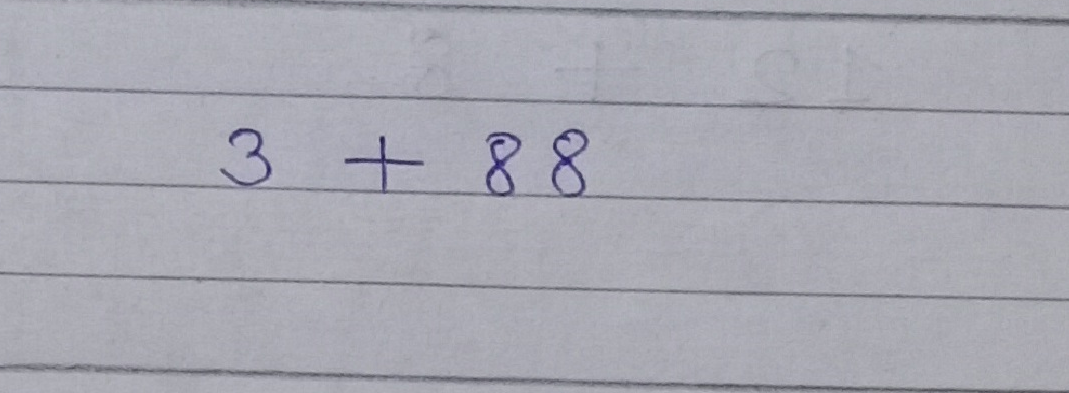 3 + 88